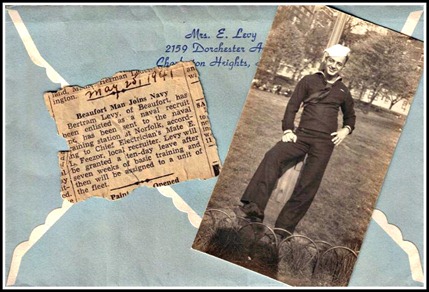 Mrs. E. Levy
2159 Dorchester A
Cha on Heights,
May 20, 194
ington.
Beaufort Man Joins Navy
Bertram Levy, of Beaufort, has
been enlisted as a naval recruit
and has been sent to the naval
training station at Norfolk, accord-
ing to Chief Electrician's Mate E.
L. Feezor, local recruiter. Levy will
be granted a ten-day leave after
seven weeks of basic training and
then will be assigned to a unit of
the fleet.
Opened